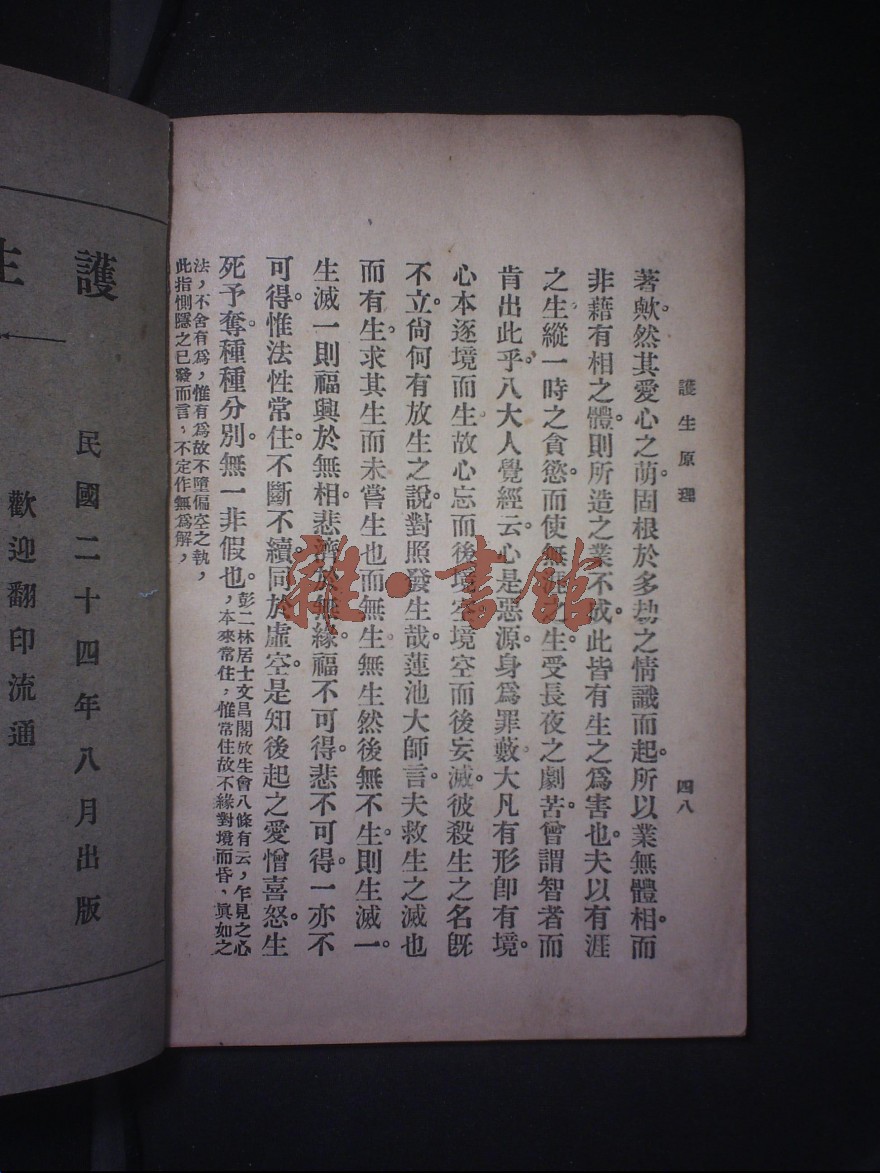 護生原理
四八
著。歟然其愛心之萌。固根於多劫之情識而起。所以業無體相。而
非藉有相之體。則所造之業不成。此皆有生之爲害也。夫以有涯
之生。縱一時之貪慾。而使無之生。受長夜之劇苦。曾謂智者而
肯出此乎。八大人覺經云。心是惡源。身爲罪藪。大凡有形卽有境。
心本逐境而生。故心忘而後境空。境空而後妄滅。彼殺生之名旣
不立。尙何有放生之說。對照發生哉。蓮池大師言。夫救生之滅也
而有生。求其生而未嘗生也。而無生。無生然後無不生。則生滅一。
生滅一則福興於無相。悲濟於無緣。福不可得。悲不可得。一亦不
可得。惟法性常住。不斷不續。同於虛空。是知後起之愛憎喜怒。生
死予奪。種種分別。無一非假也。
彭二林居士文昌閣放生會八條有云，乍見之心
，本來常住，惟常住故不緣對境而昏，眞如之
法，不舍有爲，惟有爲故不墮偏空之執，
此指惻隱之已發而言，不定作無爲解，
護生
民國二十四年八月出版
歡迎翻印流通
雜·書館